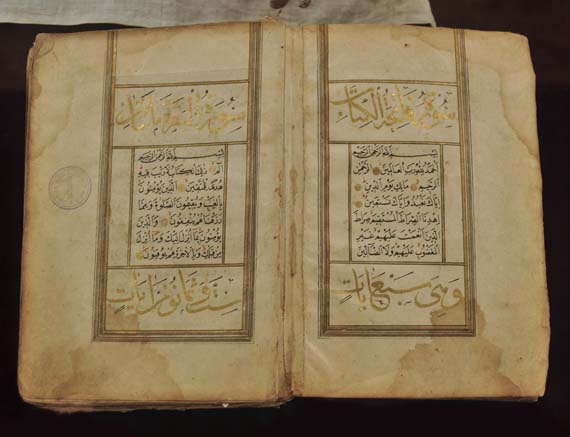 سورة فاتحة الكتاب
بسم الله الرحمن الرحيم
الحمد لله رب العالمين الرحمن
الرحيم مالك يوم الدين
اياك نعبد واياك نستعين
اهدنا الصراط المستقيم صراط
الذين انعمت عليهم غير
المغضوب عليهم ولا الضالين
وهي سبع ايات
سورة البقرة مايتان
بسم الله الرحمن الرحيم
الم ذلك الكتاب لا ريب فيه
هدى للمتقين الذين يؤمنون
بالغيب ويقيمون الصلوة ومما
رزقناهم ينفقون والذين
يؤمنون بما انزل اليك وما انزل
من قبلك وبالاخرة هم يوقنون
ست وثمانون ايات